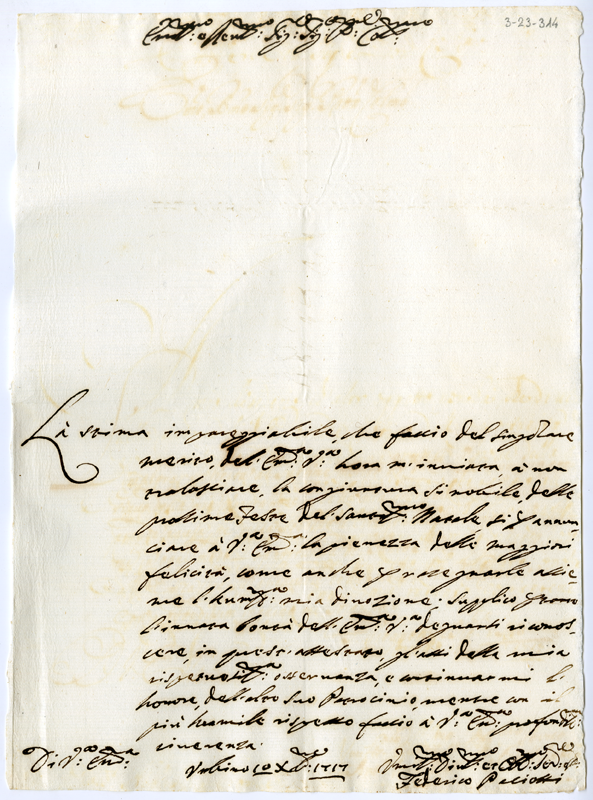 3-23-314
Em:mo e Rever:mo Sig: Sig: P: Col:mo
La stima impareggiabile, che faccio del singolare
merito dell'Em:za V:ra hora m'inuita, à non
tralasciare, la congiuntura si nobile delle
prossime Feste del Santiss:mo Natale, di annun-
ciare à V:ra Em:za la pienezza delle maggiori
felicità, come anche rasegnarle assie-
me l'hum:ma mia diuozione. Supplico
l'innata bontà dell'Em:za V:ra degnarsi riconos-
cere, in questi attestati, gl'atti della mia
rispettosis:ma osseruanza, e continuarmi l'
honore, dell'alto suo Patrocinio, mentre con il
più humile rispetto faccio à V:ra Em:za profondis:ma
riuerenza.
Di V:ra Em:za
Urbino 10 Xbre: 1717
Um:mo Diu:mo et Obl:mo Ser:e
Federico Paciotti